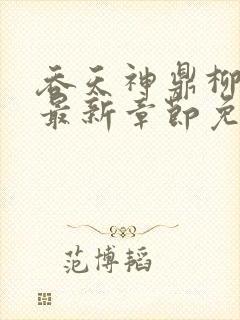 吞天神鼎柳
最新章节免
范博韬